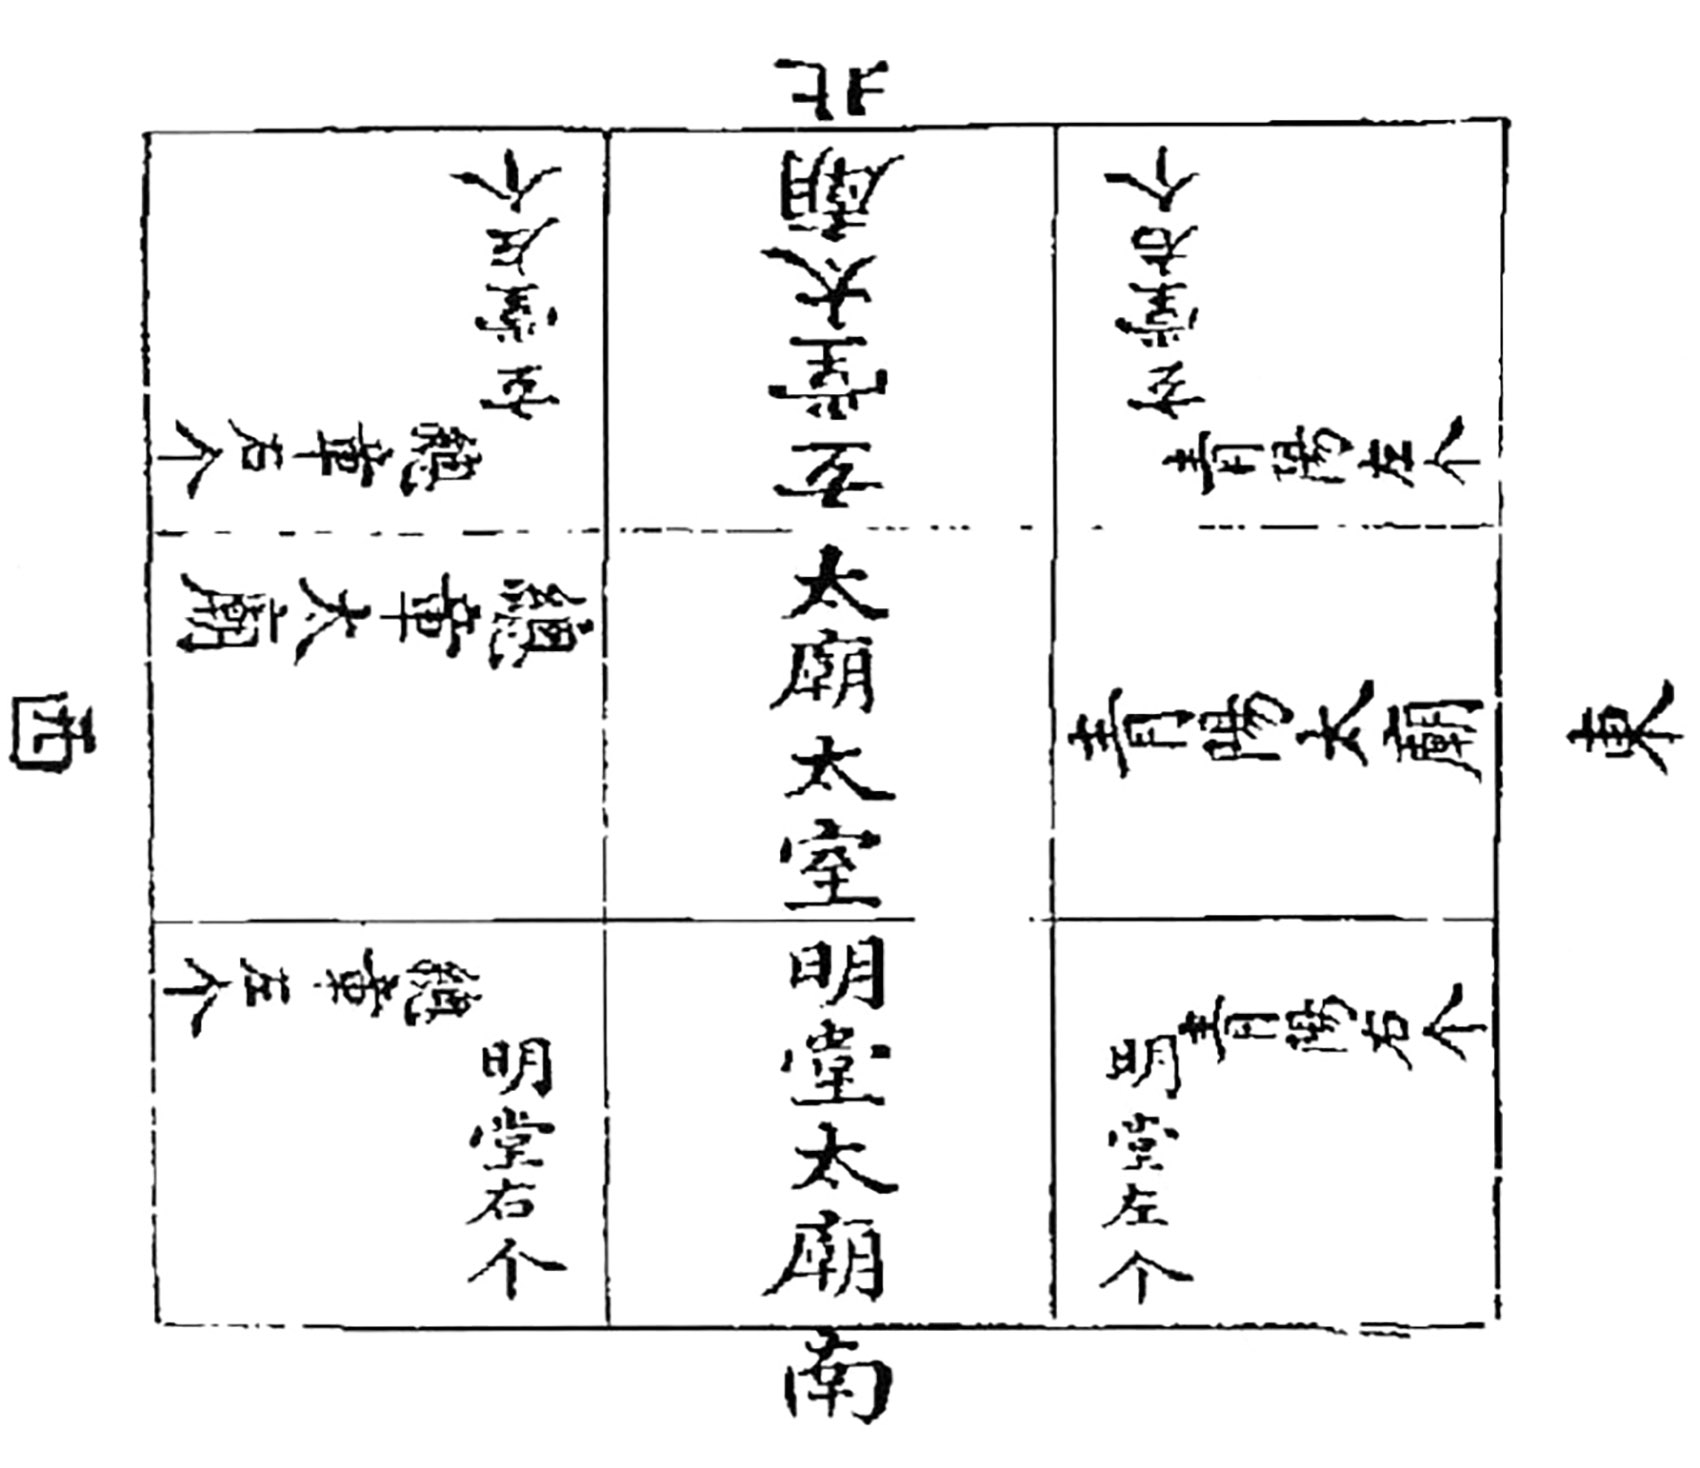 北
玄堂太廟
玄堂右个
玄堂左个
青陽左个
總章右个
太廟太室
青陽太廟
總章太廟
東
西
明堂太廟
青陽右个
明堂左个
總章左个
明堂右个
南